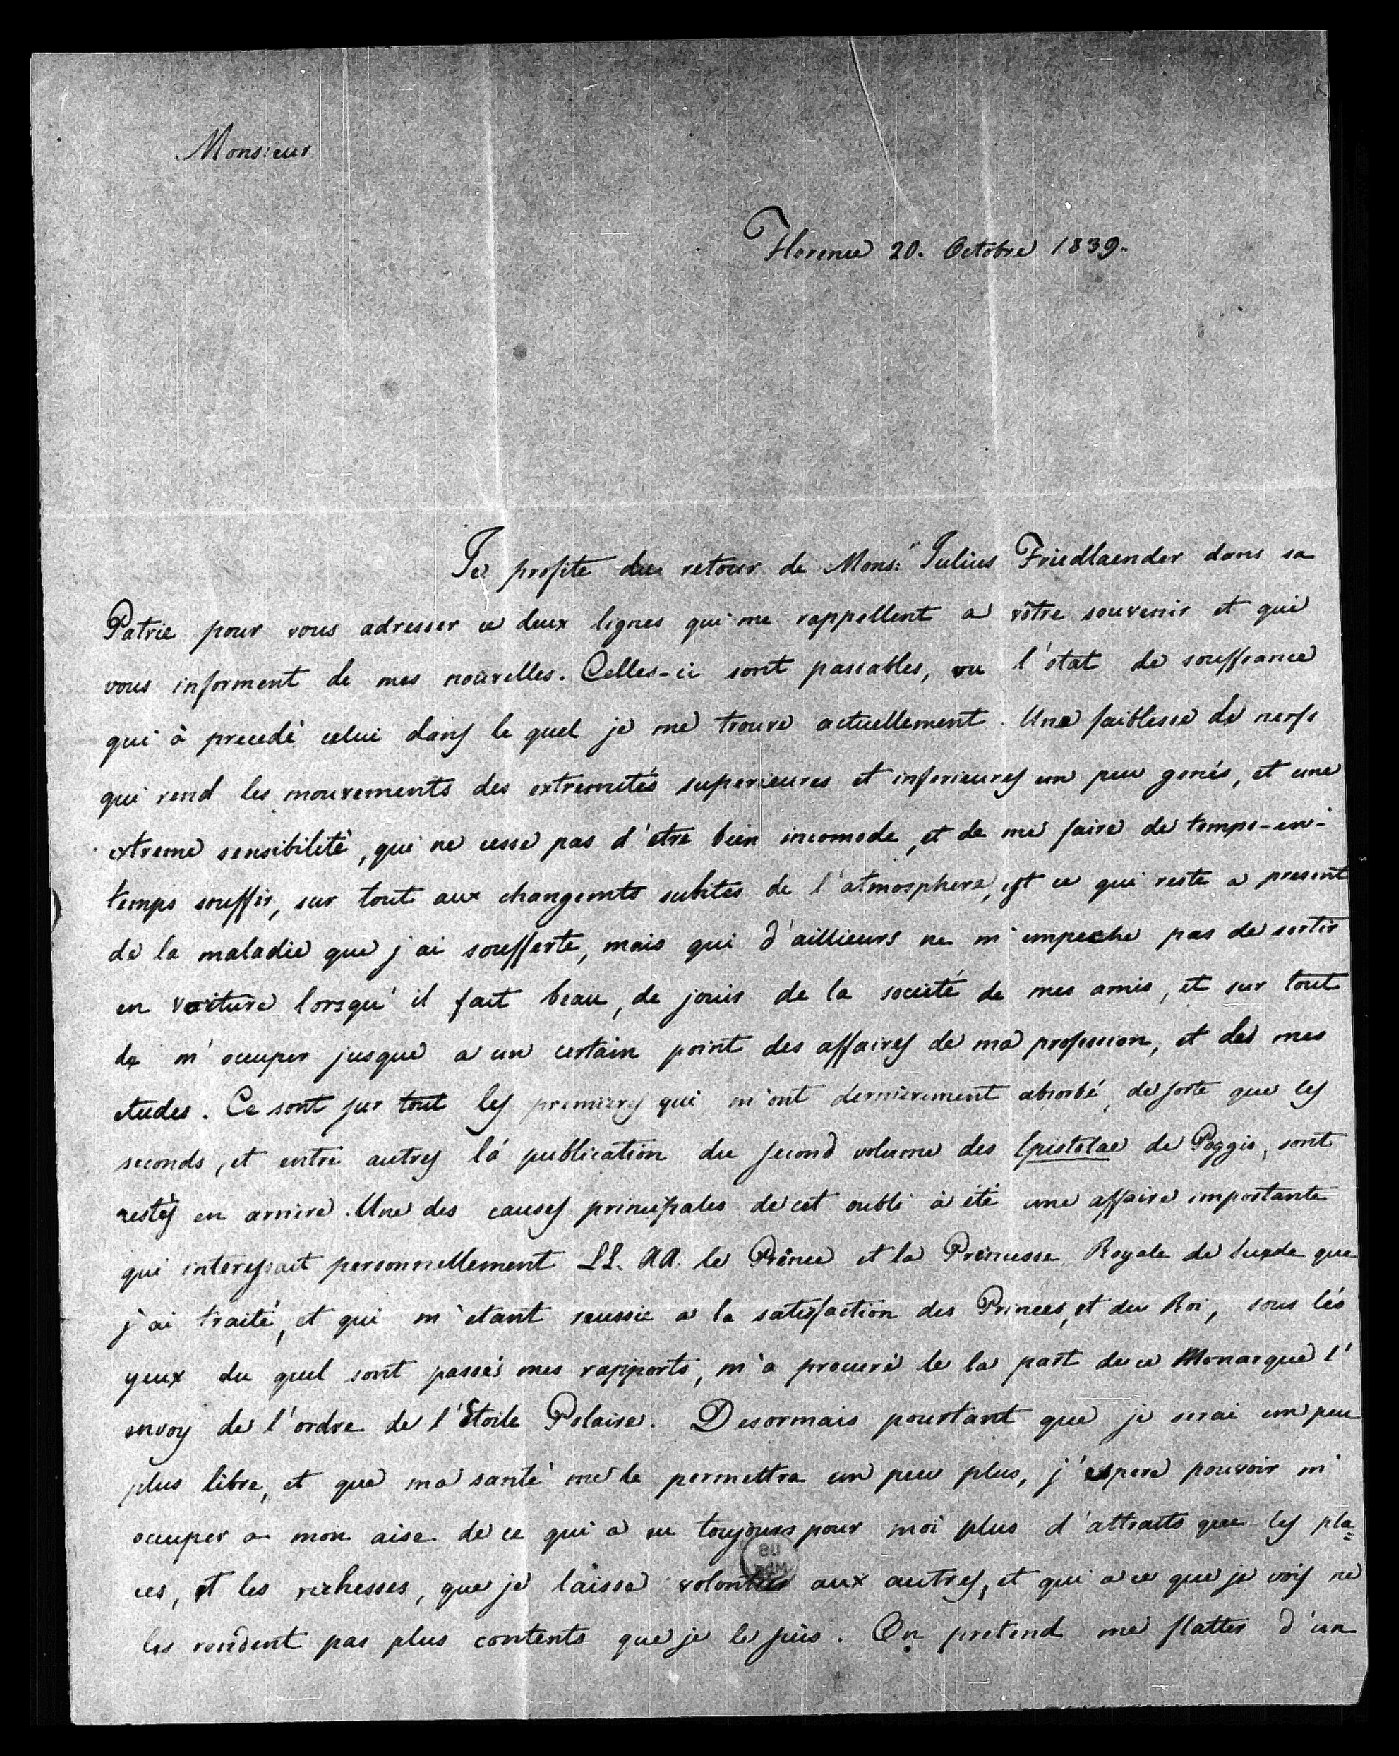 Monsieur
Florence 20. Octobre 1839.
Je profite du retour de Mons.r Julius Friedlaender dans sa
Patrie pour vous adresser ce deux lignes qui me rappellent a vôtre souvenir et qui
vous informent de mes nouvelles. Celles-ci sont passables, vu l'état de souffrance
qui à precedé celui dans le quel je me trouve actuellement. Une faiblesse de nerfs
qui rend les mouvements des extremités superieures et inferieures un peu genés, et une
extreme sensibilité, qui ne cesse pas d'etre bien incomode, et de me faire de temps-en-
temps souffrir, sur tout aux changemts subites de l'atmosphere, est ce qui reste a present
de la maladie que j'ai soufferte, mais qui d'aillieurs ne m'empeche pas de sortir
en voiture lorsqu'il fait beau, de jouir de la societé de mes amis, et sur tout
de m'occuper jusque a un certain point des affaires de ma profession, et des mes
etudes. Ce sont sur tout les premieres qui m'ont dernierement absorbé, de sorte que les
seconds, et entre autres la publication du second volume des Epistolae de Poggio, sont
restés en arriere. Une des causes principales de cet oubli à été une affaire importante
qui interessait personnellement LL. AA. le Prince et la Princesse Royale de Suede que
j'ai traité, et qui m'etant reussie a la satisfaction des Princes, et du Roi, sous les
yeux du quel sont passés mes rapports, m'a procuré de la part de ce Monarque l'
envoy de l'ordre de l'Etoile Polaire. Desormais pourtant que je serai un peu
plus libre, et que ma santé me le permettra un peu plus, j'espere pouvoir m'
occuper a mon aise de ce qui a eu toujours pour moi plus d'attraits que les pla=
ces, et les richesses, que je laisse volontiers aux autres, et qui a ce que je vois ne
les rendent pas plus contents que je le suis. On pretend me flatter d'un
BU